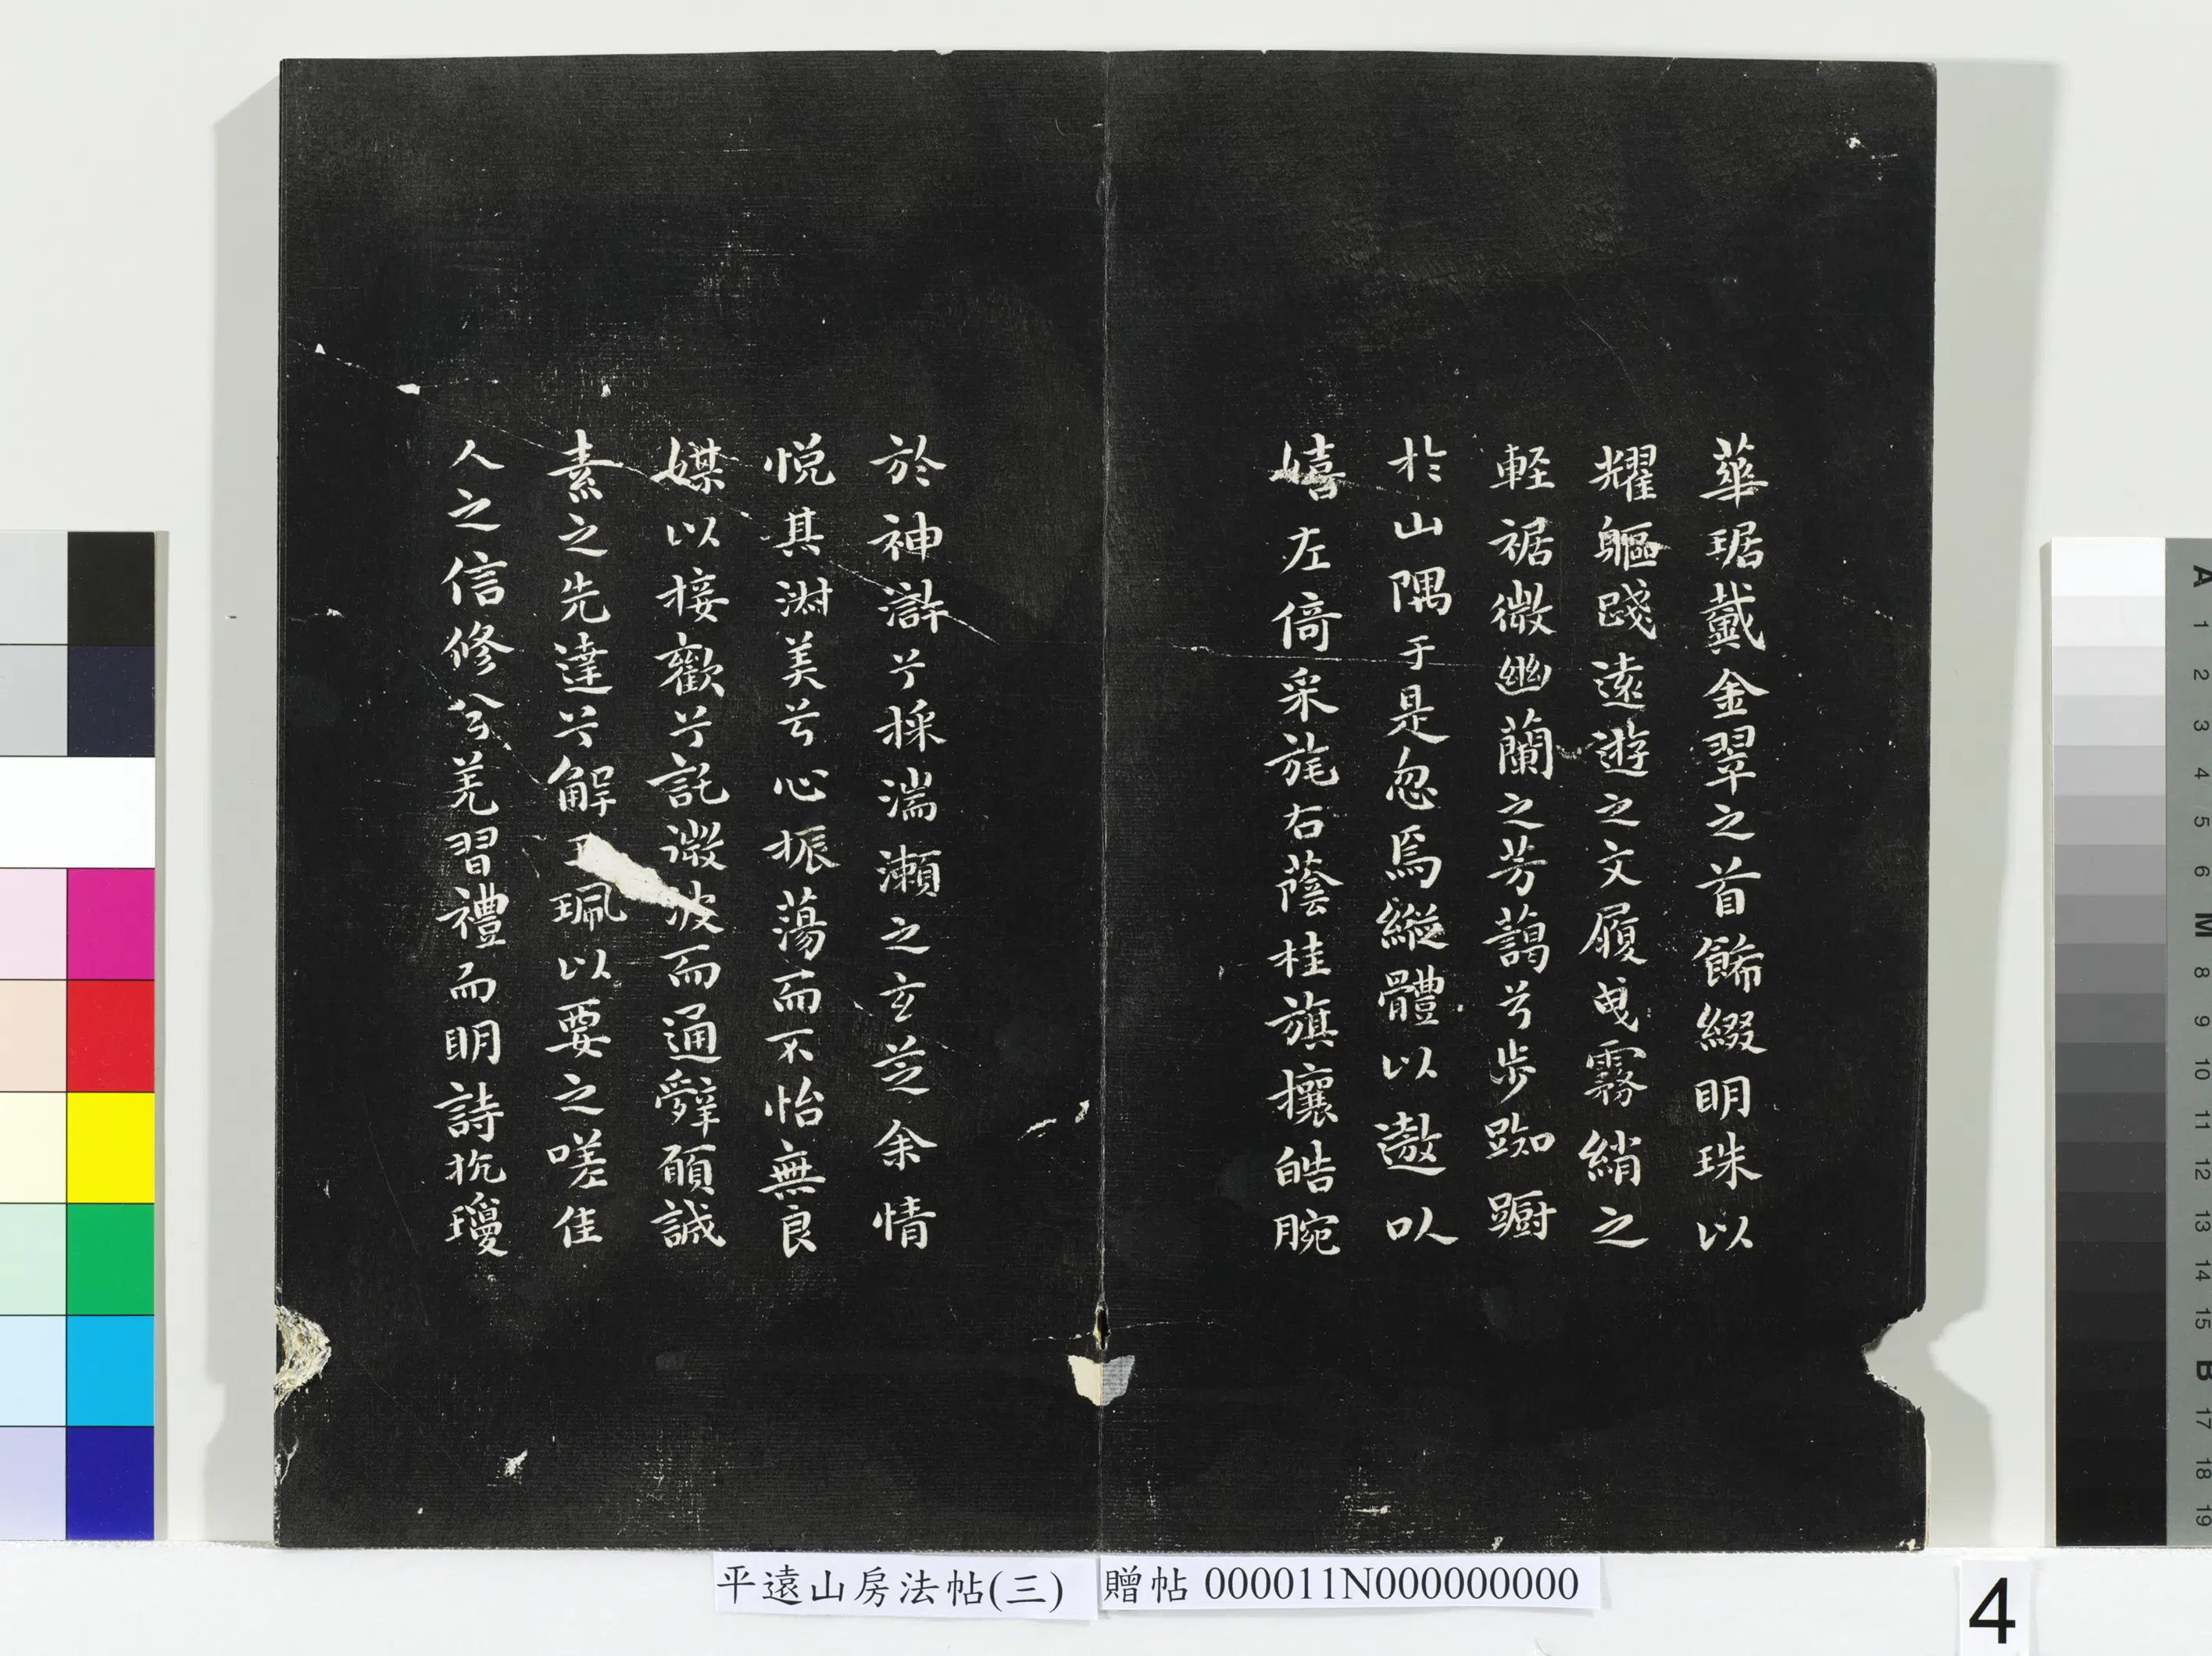 華琚戴金翠之首餙綴明珠以
耀軀踐遠遊之文履曳霧綃之
軽裾微幽蘭之芳藹兮步踟躕
於山隅于是忽焉縱體以遨以
嬉左倚采旄右蔭桂旗攘皓腕
於神滸兮採湍瀨之玄芝余情
悦其淑美兮心振蕩而不怡無良
媒以接歡兮託微波而通辭願誠
素之先達兮解珮以要之嗟佳
人之信修兮羌習禮而明詩抗瓊
平遠山房法帖(三)
贈帖 000011N000000000
4
A 1 2 3 4 5 6 M 8 9 10 11 12 13 14 15 B 17 18 19